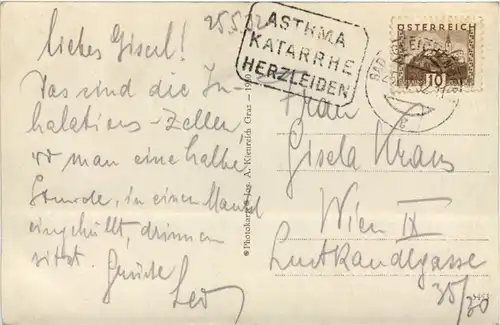 25.5.32
Liebes Giserl!
Das sind die In-
halations-Zellen,
wo man eine halbe
Stunde, in einen Mantel
eingehüllt, drinnen
sitzt. Grüsse
Leo
ASTHMA
KATARRHE
HERZLEIDEN
ÖSTERREICH
10
Photokarte Jos. A. Kienreich Graz
Frau
Gisela Kraus
Wien IX
Lustkandlgasse
35/30